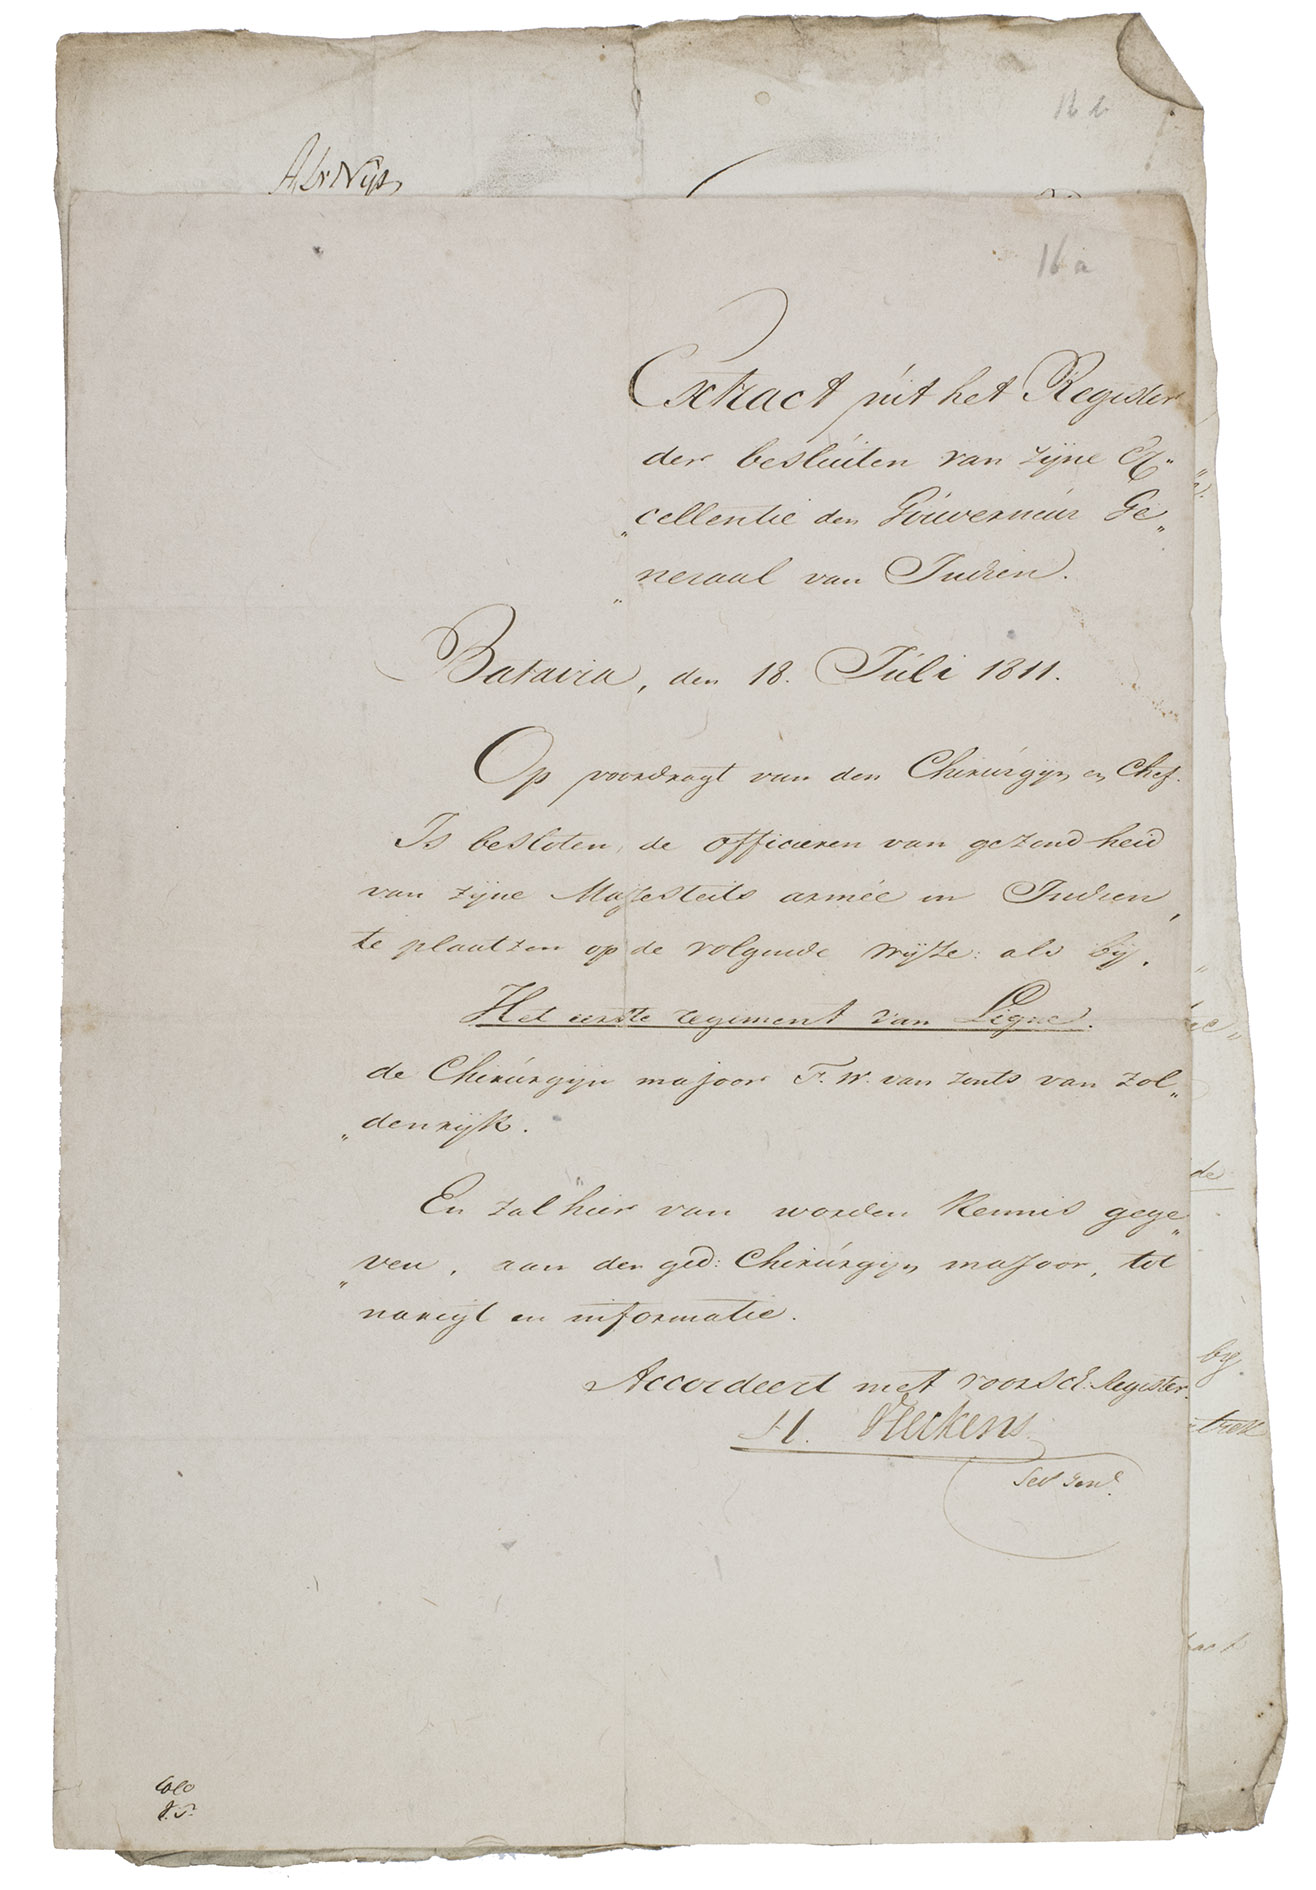 16 b
A. Dr Nijs
16 a
Extract uit het Register
der besluiten van zijne Ex„
„cellentie den Gouverneur Ge„
„neraal van Indien.
Batavia, den 18. Juli 1811.
Op voordragt van den Chirurgijn en Chef.
Is besloten, de officieren van gezondheid
van zijne Majesteits armée in Indien,
te plaatzen op de volgende wijze: als bij.
Het eerste regiment van Ligne.
de Chirurgijn majoor F. W. van Zents van Zol„
„denrijk.
En zal hier van worden Kennis gege„
„ven, aan den ged: Chirurgijn majoor, tot
narigt en informatie.
Accordeert met voorsch: Register.
H. Veekens
Sec Genl.
de
bij.
Coll